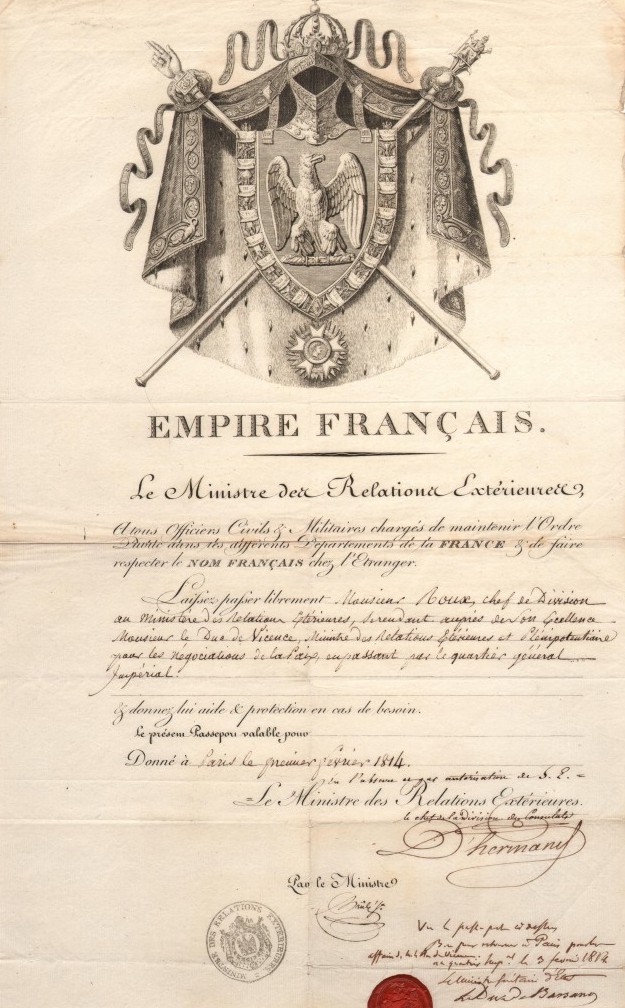 EMPIRE FRANÇAIS.
Le Ministre des Relations Extérieures,
A tous Officiers Civils & Militaires chargés de maintenir l'Ordre
Public dans les différents Départements de la FRANCE & de faire
respecter le NOM FRANÇAIS chez l'Etranger.
Laissez passer librement Monsieur Roux, chef de Division
au ministère des Relations Extérieures, se rendant auprès de Son Excellence
Monsieur le Duc de Vicence, Ministre des Relations Extérieures et Plénipotentiaire
pour les négociations de la Paix, en passant par le quartier général
Impérial.
& donnez lui aide & protection en cas de besoin.
Le présent Passeport valable pour
Donné à Paris le premier février 1814.
l'absence et par autorisation de S. E.
Le Ministre des Relations Extérieures.
le chef de la Division des Consulats
D'hermand
Par le Ministre
MINISTERE DES RELATIONS EXTERIEURES
Vu le passe-port ci dessus
Bon pour retourner à Paris
le 3 février 1814
Le Ministre d'Etat
Le Duc de Bassano